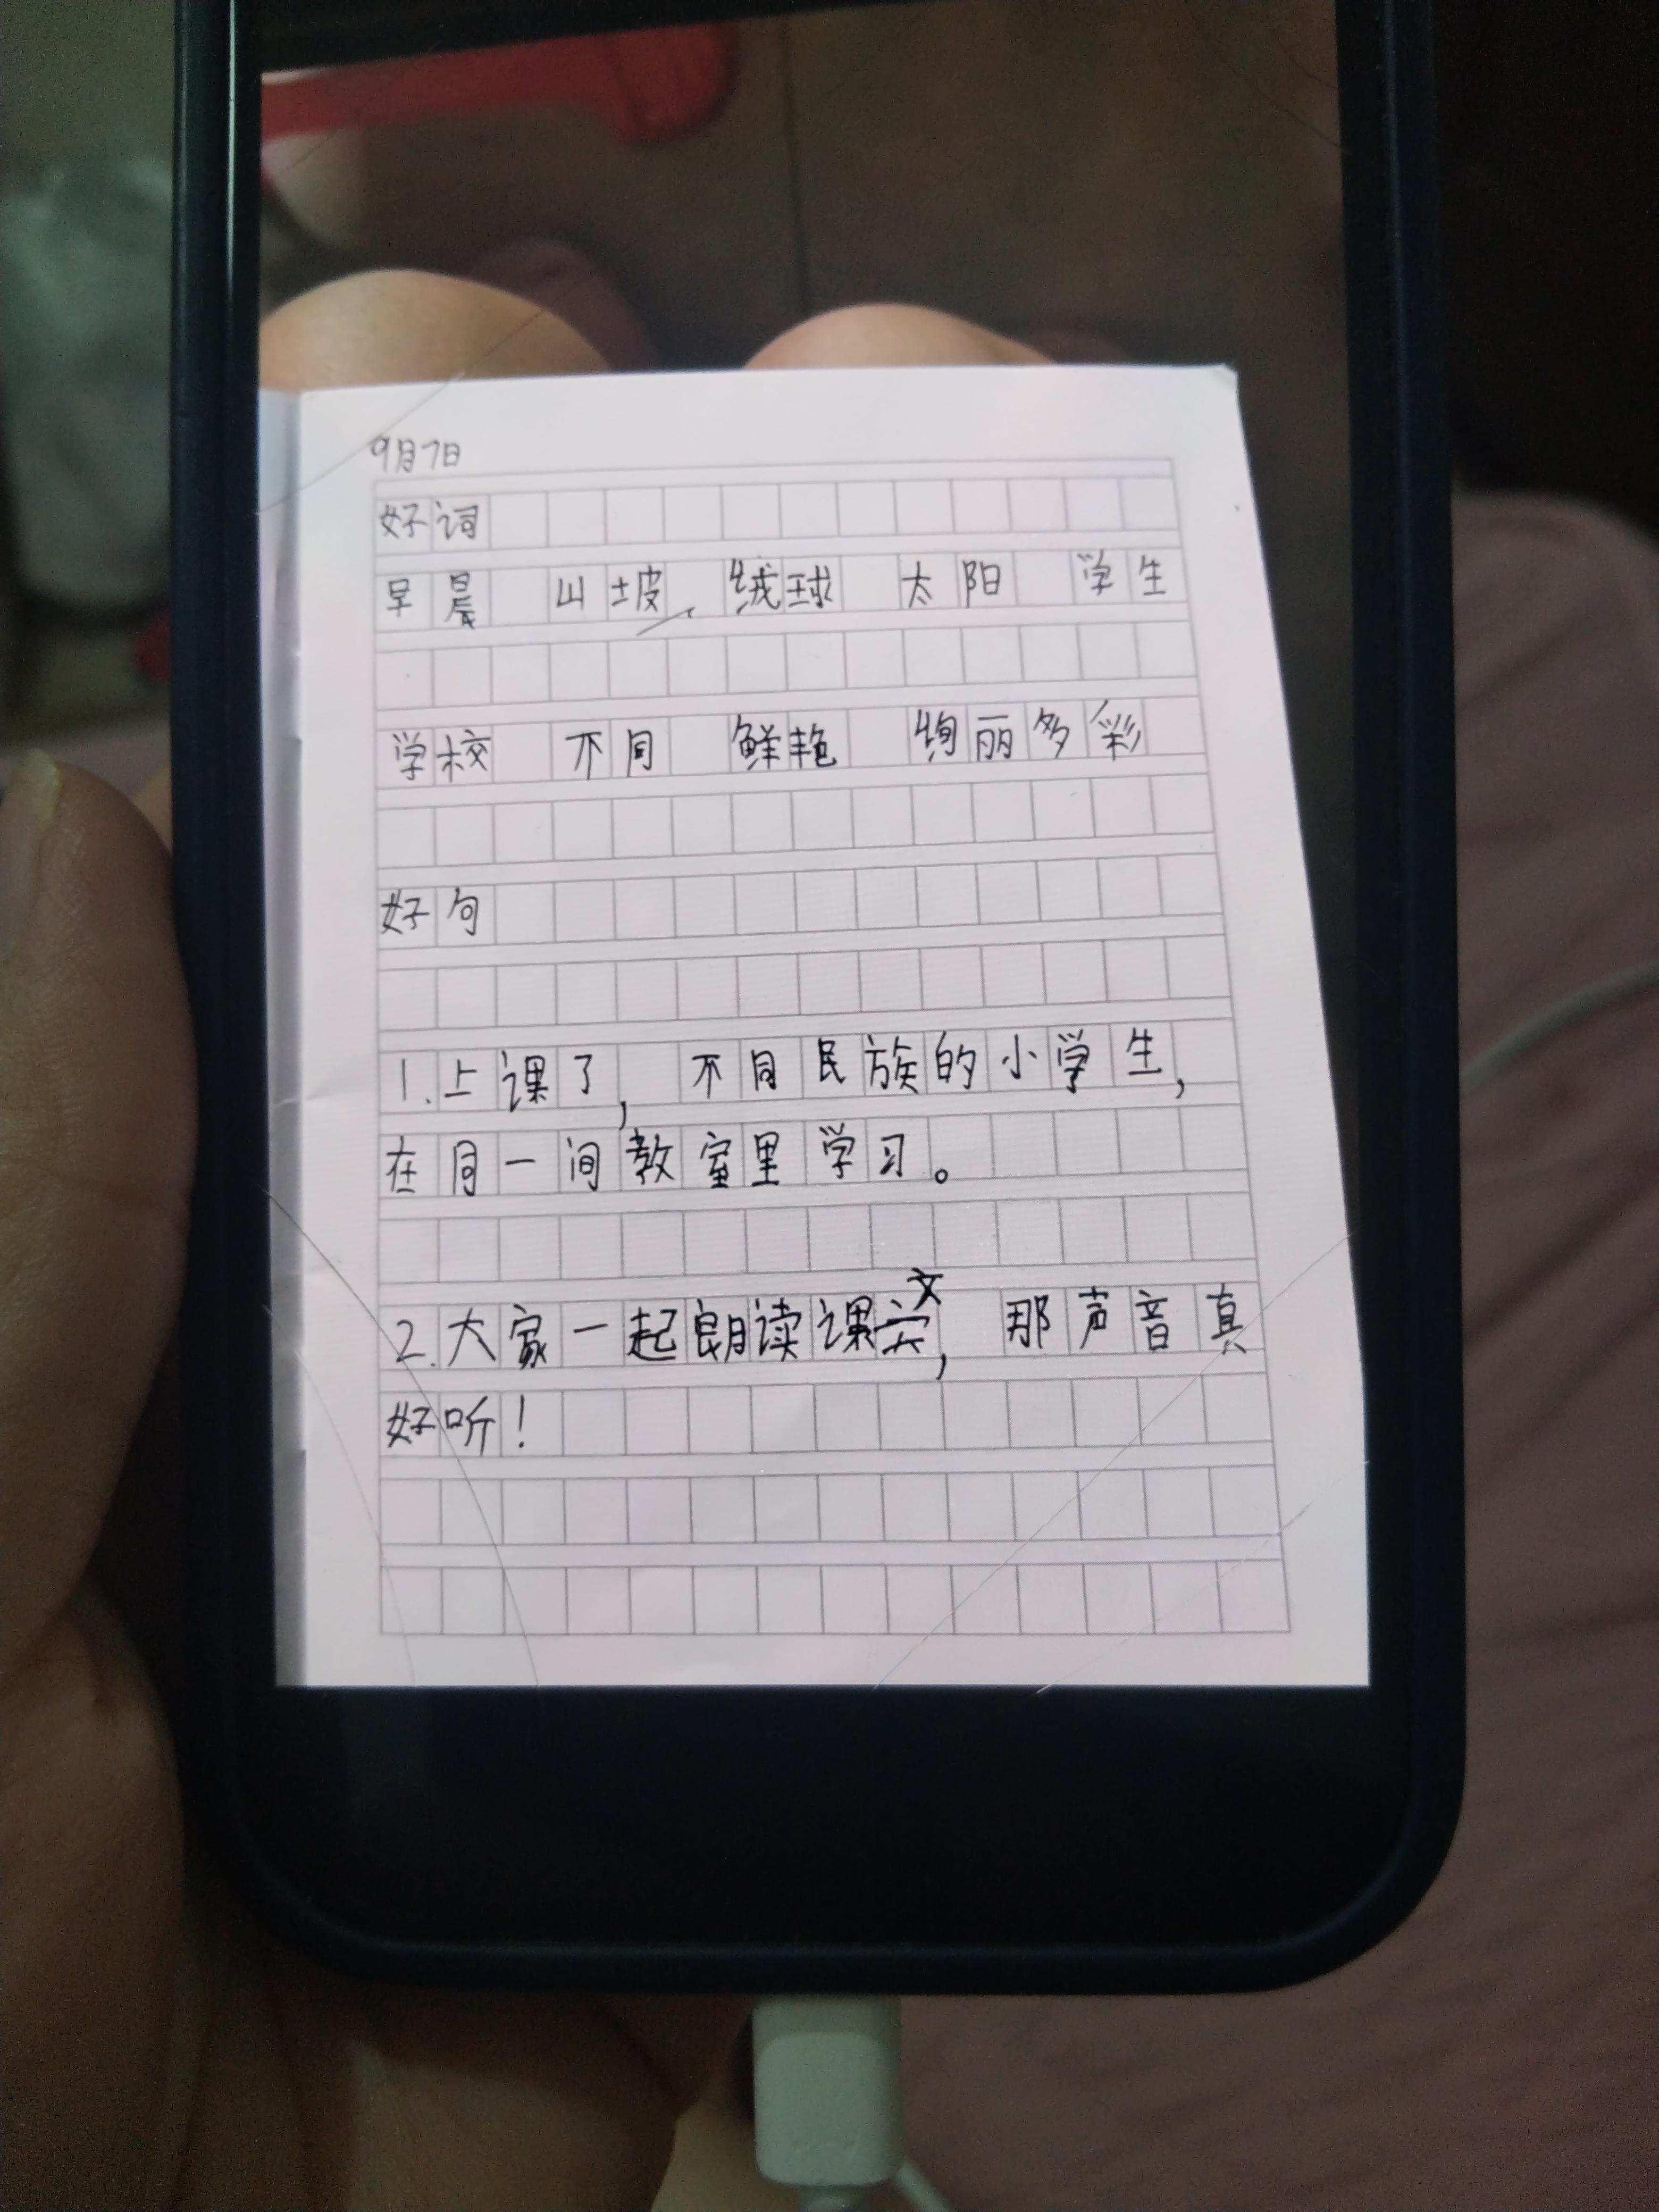 9月7日
好词
早晨 山坡 绒球 太阳 学生
学校 不同 鲜艳 绚丽多彩
好句
1.上课了, 不同民族的小学生,
在同一间教室里学习。
2.大家一起朗读课文, 那声音真
好听!